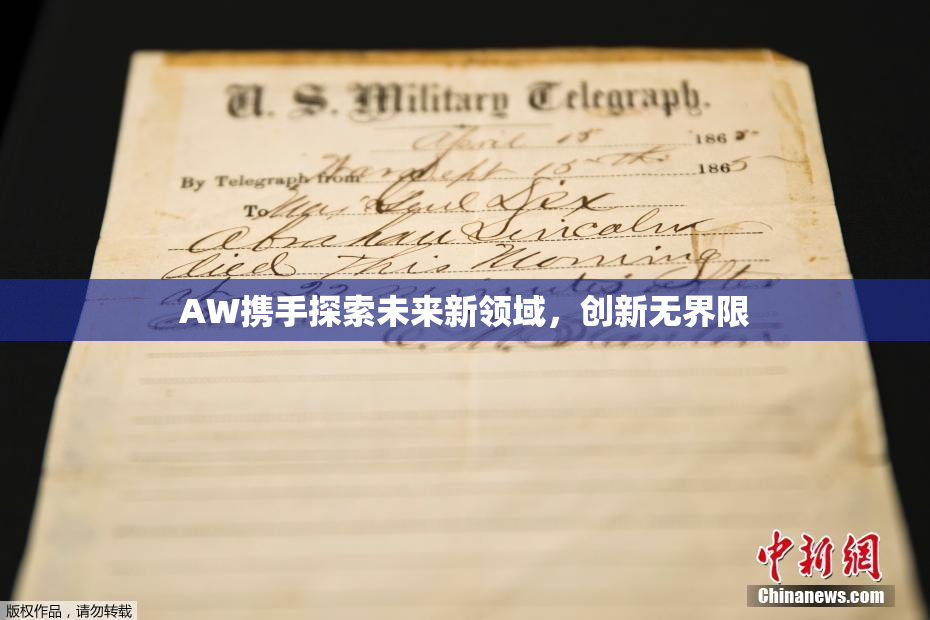 U. S. Military Telegraph.
April 15 1865
By Telegraph from War Dept 15th 1865
To Maj Genl Dix
Abraham Lincoln
died This Morning
at 22 minutes after
AW携手探索未来新领域，创新无界限
E. M. Stanton
中新网
Chinanews.com
版权作品，请勿转载